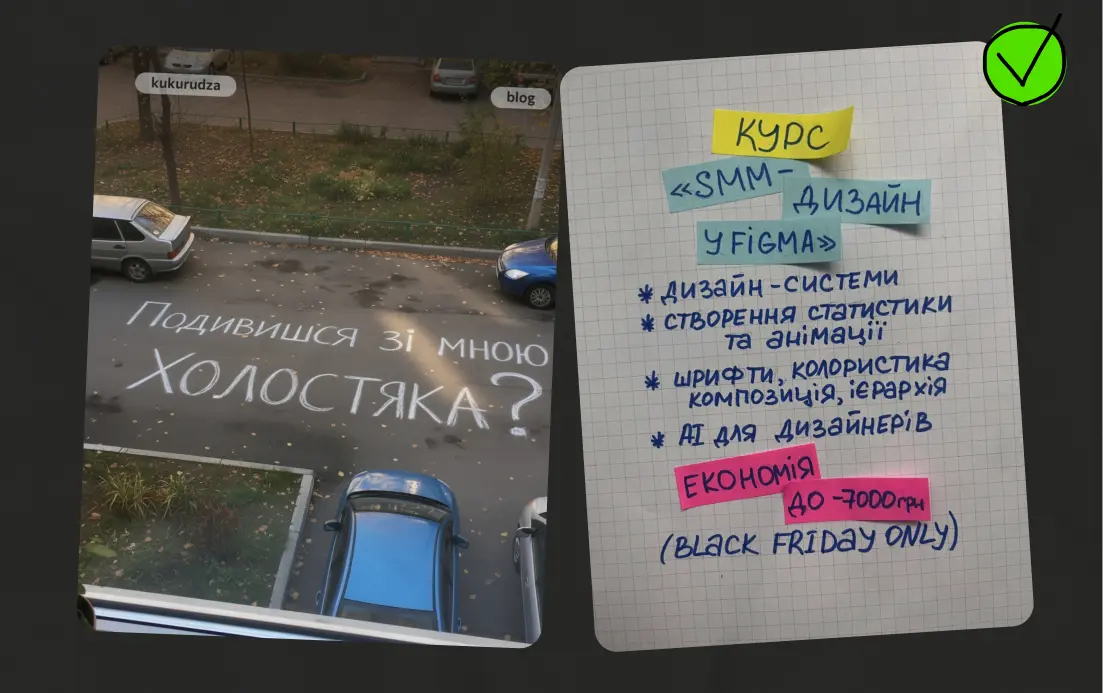 kukurudza
blog
Подивишся зі мною
ХОЛОСТЯКА?
КУРС
«SMM-
ДИЗАЙН
У FIGMA»
* ДИЗАЙН-СИСТЕМИ
* СТВОРЕННЯ СТАТИСТИКИ
ТА АНІМАЦІЇ
* ШРИФТИ, КОЛОРИСТИКА
КОМПОЗИЦІЯ, ІЄРАРХІЯ
* AI ДЛЯ ДИЗАЙНЕРІВ
ЕКОНОМІЯ
ДО -7000грн
(BLACK FRIDAY ONLY)